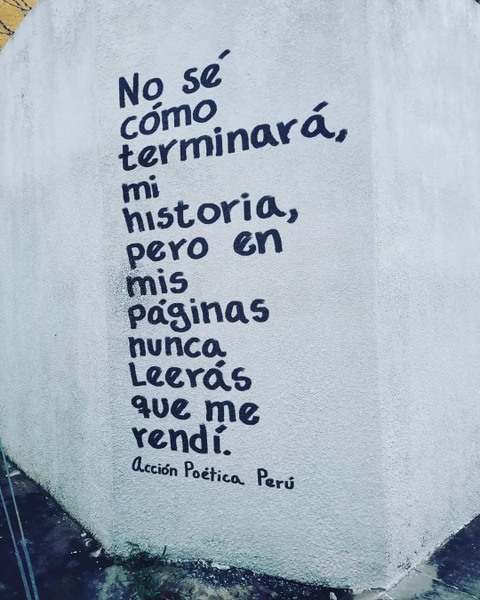 No sé
cómo
terminará,
mi
historia,
pero en
mis
páginas
nunca
Leerás
que me
rendí.
Acción Poética Perú